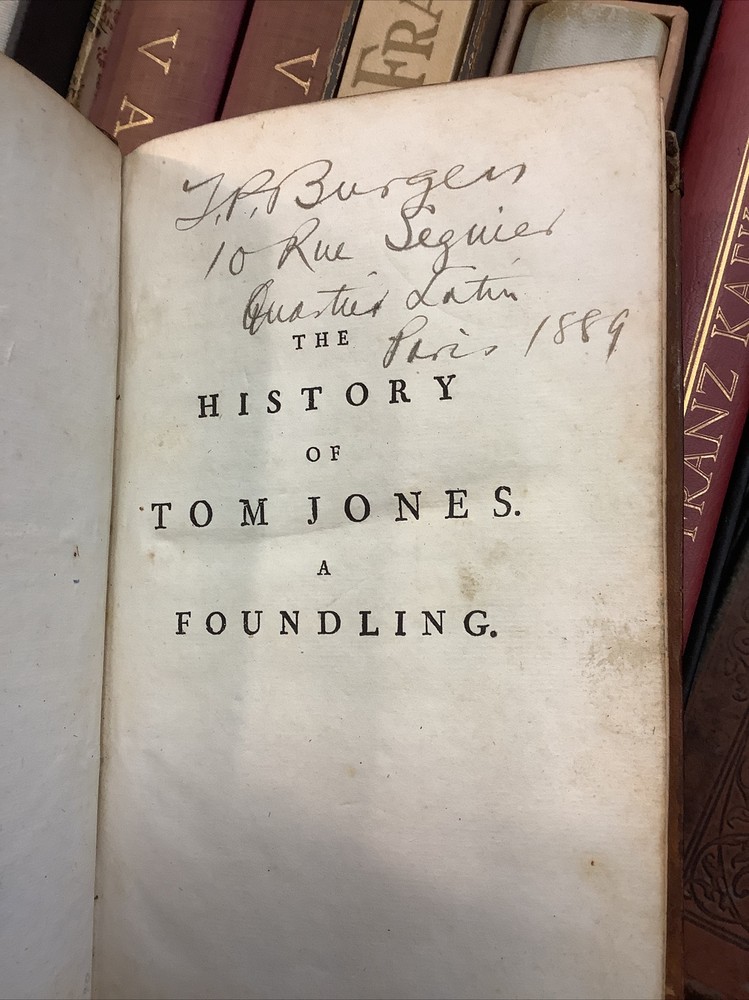 V
A
V
FRA
T.P. Burgess
10 Rue Seguier
Quartier Latin
Paris 1889
THE
HISTORY
OF
TOM JONES.
A
FOUNDLING.
FRANZ KAF